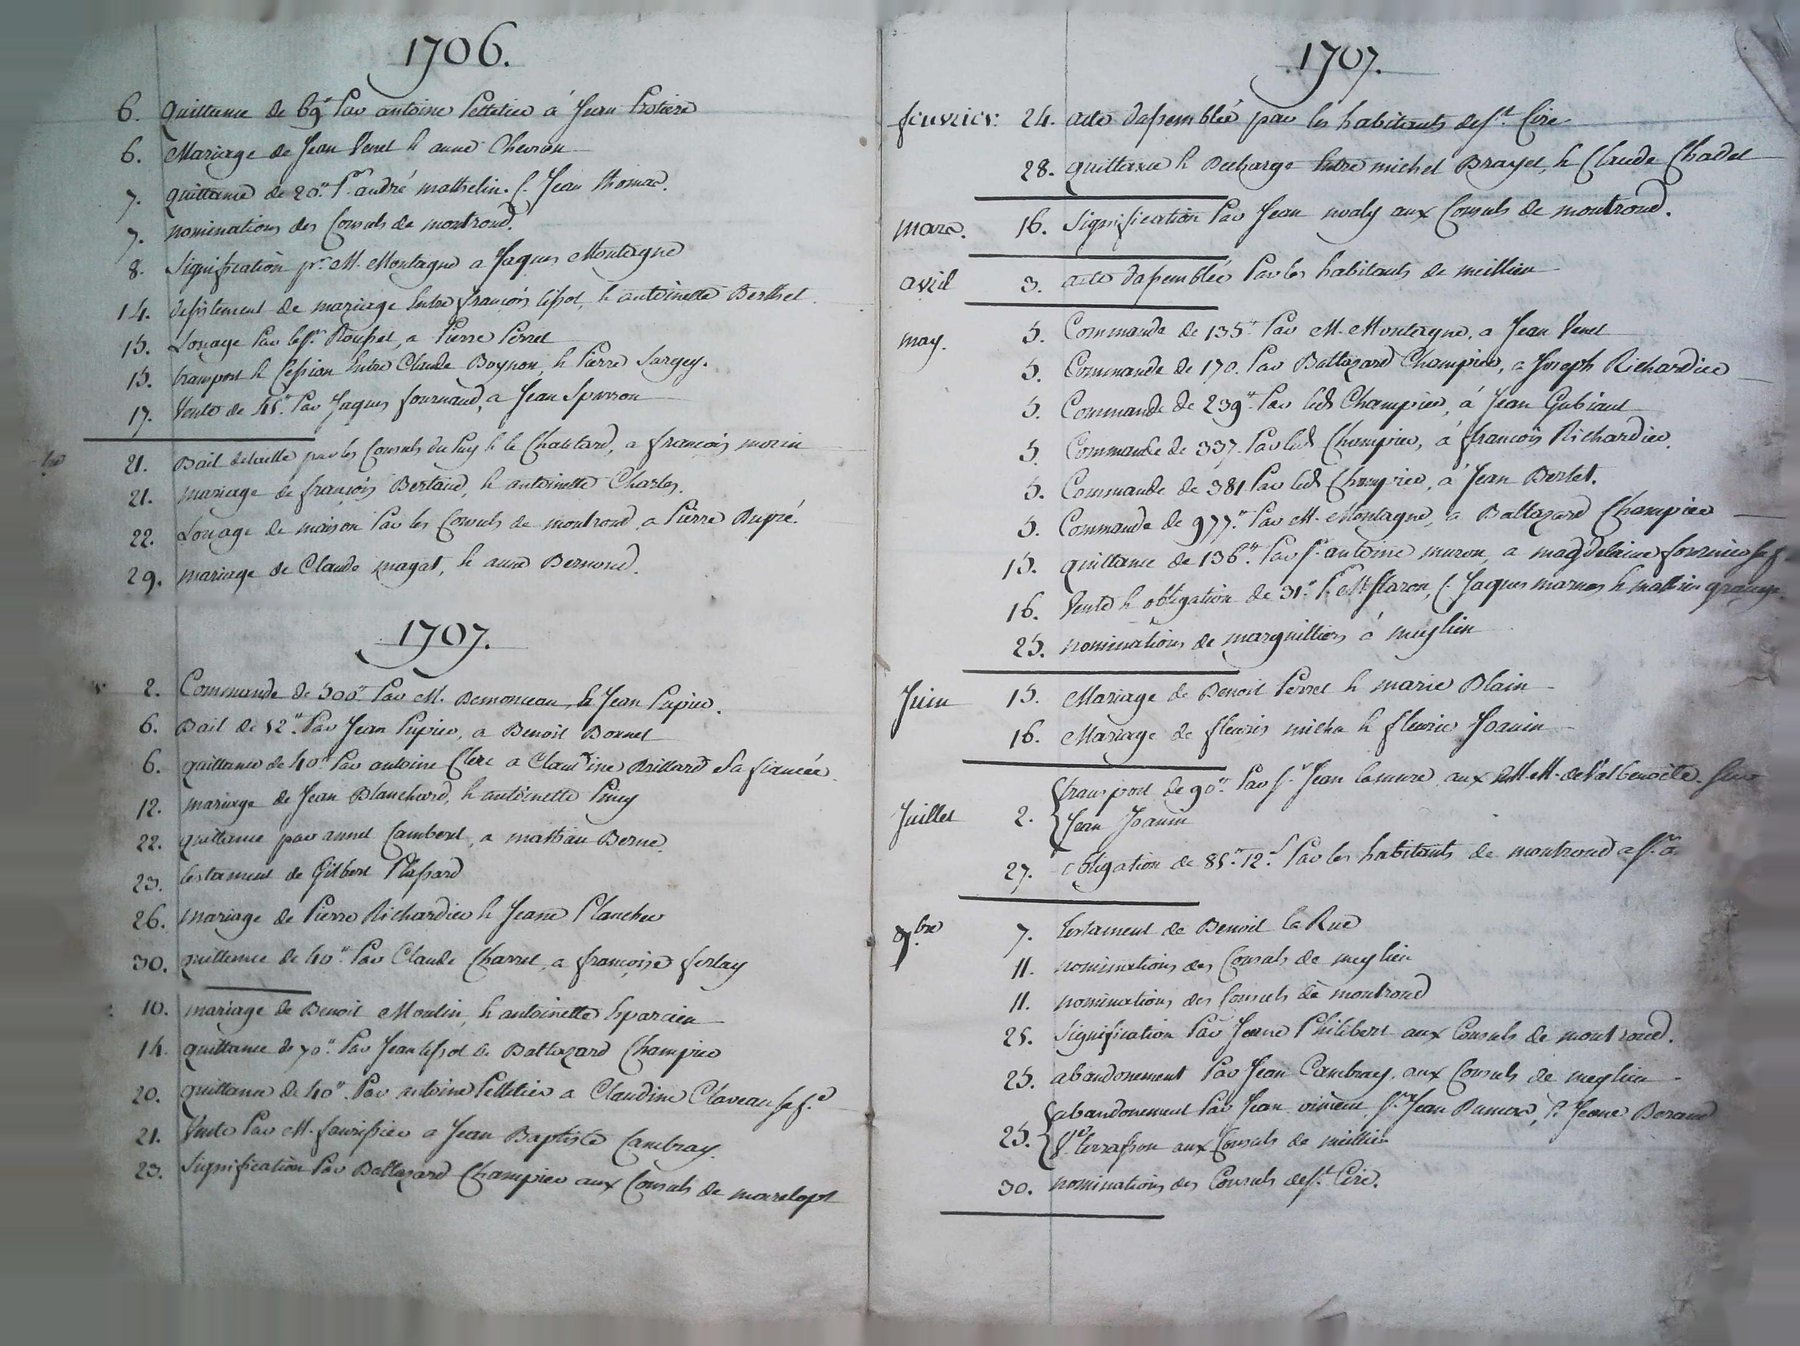 1706.
6. quittance de 69# Par antoine Pelletier à Jean Protiere
6. Mariage de Jean Venet & anne Chevron
7. quittance de 20# Pr andré mathelin. Sr Jean thomas.
7. nominations des Consuls de montrond.
8. Signification pr. M. Montagne a Jaques Montagne
14. desistement de mariage Entre françois &  antoinette Berthet.
15. Louage Par le Sr. Rousset, a Pierre Perret
15. transport & Cession Entre Claude Boynon, & Pierre Sargey.
17. Vente de 45# Par Jaques fournand, a Jean Sperron
21. Bail de taille par les Consuls du Puy & le Chatelard, a françois morin
21. mariage de françois Bertaud, & antoinette Charles.
22. Louage de maison Par les Consuls de montrond, a Pierre Dupré.
29. mariage de Claude magat, & anne Bermond.
1707.
2. Commande de 500# Par M. Demonceau, & Jean Pupier.
6. Bail de 52# Par Jean Pupier, a Benoit Bonnet
6. quittance de 40# Par antoine Clerc a Claudine Brillard Sa fiancée.
12. mariage de Jean Blanchard, & antoinette Piney
22. quittance par annet Cambert, a mathieu Berne.
23. testament de Gilbert Plassard
26. Mariage de Pierre Richardier & Jeane Plancher
30. quittance de 40# Par Claude Charret, a françoise ferlay
10. mariage de Benoit Moulin, & antoinette Eparcieu
14. quittance de 70# Par Jean  de Baltazard Champier
20. quittance de 40# Par antoine Pelletier a Claudine Claveau sa fe
21. Vente Par M. faurissier a Jean Baptiste Cambray.
23. Signification Par Baltazard Champier aux Consuls de marclopt
1707.
feuvrier. 24. acte d'assemblée par les habitants de St. Cire
28. quittance & Decharge Entre michel Brayet, & Claude Chadel
mars. 16. Signification Par Jean novaly aux Consuls de montrond.
avril 3. acte d'assemblée Par les habitants de meillieu
may. 5. Commande de 135# Par M. Montagne, a Jean Venet
5. Commande de 170. Par Baltazard Champier, a Joseph Richardier
5. Commande de 239# Par led. Champier, à Jean Gubiant
5. Commande de 337. Par led. Champier, à françois Richardier.
5. Commande de 381 Par led. Champier, à Jean Berlet.
5. Commande de 977# Par M. Montagne, a Baltazard Champier
15. quittance de 136# Par Sr. antoine muron, a magdelaine fournier sa f.
16. Vente & obligation de 31# Pr Mr flaron, Sr Jaques marnas & mathieu grange.
25. nominations de marguilliers à meylieu
Juin 15. Mariage de Benoit Perret & marie Blain
16. Mariage de fleuris micha & fleurie Jouin
Juillet 2. { transport de 90# Par Sr. Jean lamure aux MM. de Valbenoite. Sur
Jean Joanin
27. obligation de 85# 12s Par les habitants de montrond a
9bre 7. testament de Benoit la Rue
11. nominations des Consuls de meylieu
11. nominations des Consuls de montrond
25. Signification Par Jeane Philibert aux Consuls de montrond.
25. abandonement Par Jean Cambray. aux Consuls de meylieu
25. { abandonement Par Jean vincent, Sr Jean Dumas, & Jeane Beraud
Ve. terrasson aux Consuls de meillieu
30. nominations des Consuls de St. Cire.